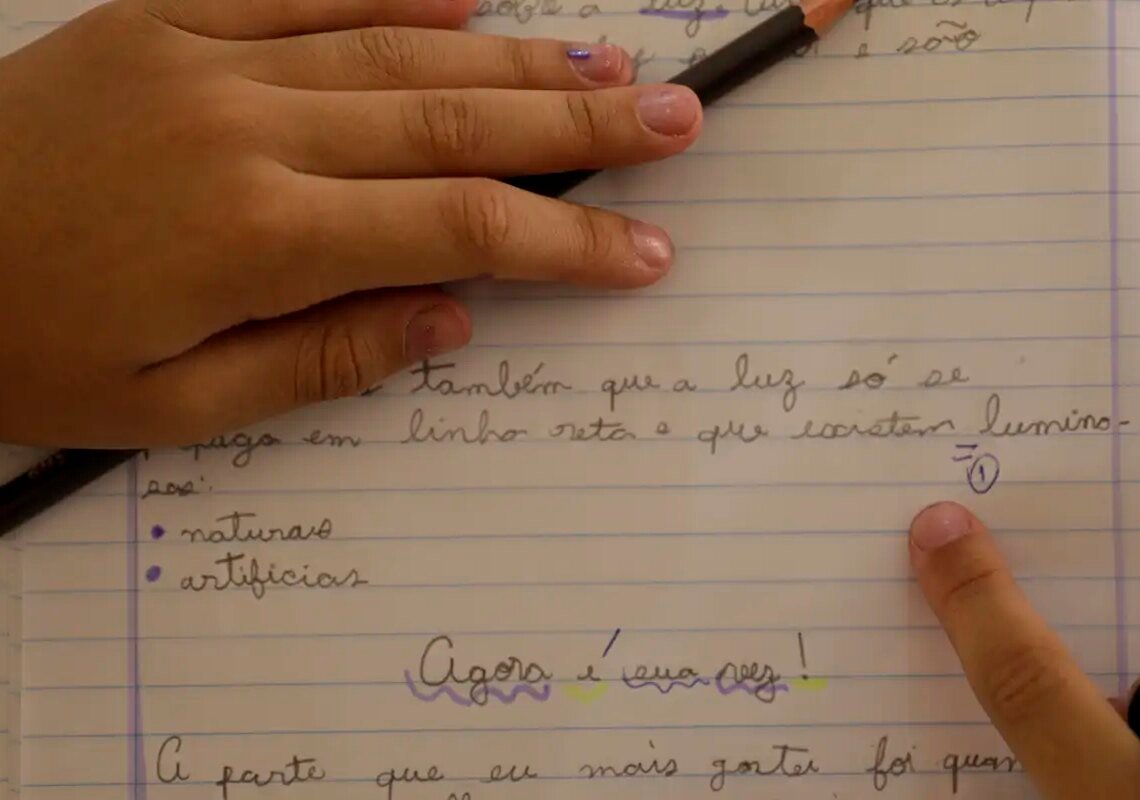 sobre a luz.
e são
também que a luz só se
em linha reta e que existem lumino-
sos:
• naturais
• artificias
= ①
Agora é sua vez!
A parte que eu mais gostei foi quan